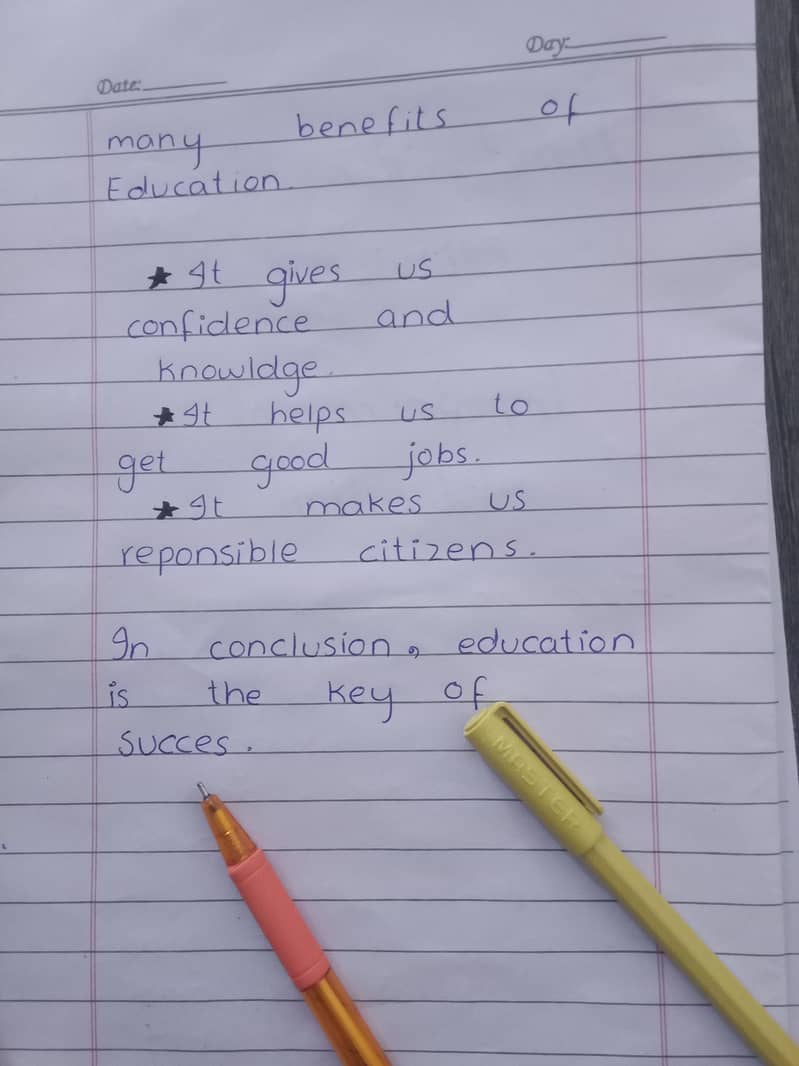 Day:
Date:
many benefits of
Education.
★ It gives us
confidence and
knowldge.
★ It helps us to
get good jobs.
★ It makes us
reponsible citizens.
In conclusion, education
is the key of
succes.
MASTER